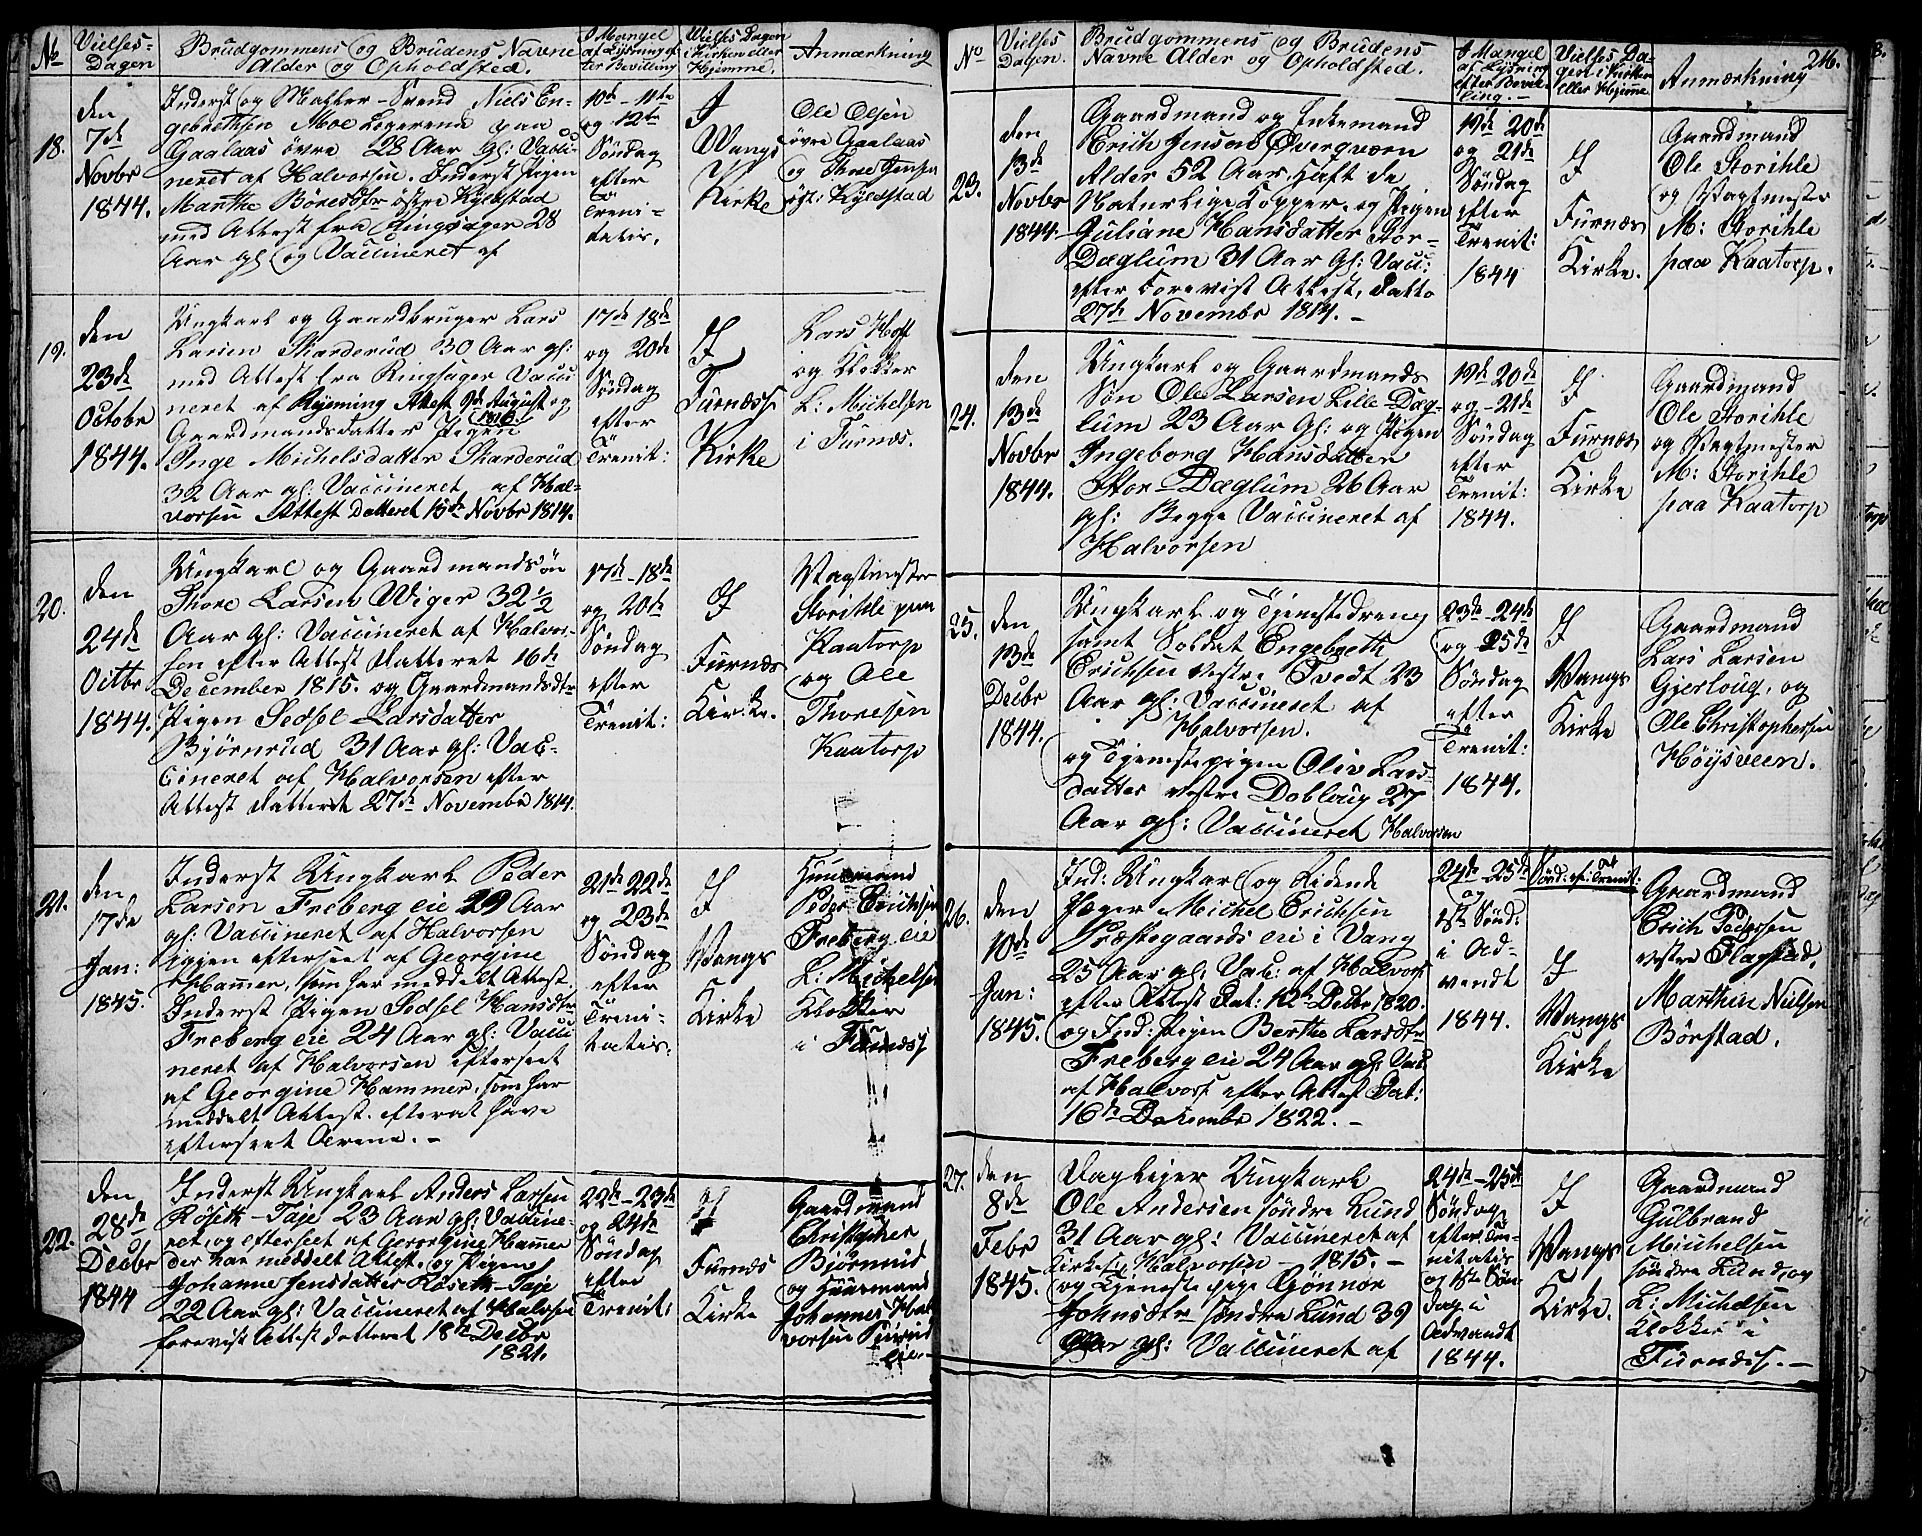 No
Vielses-
Dagen
Brudgommens og Brudens Navne
Alder og Opholdsted.
I Mangel
af Lysning ef-
ter Bevilling
Vielses Dagen
i Kirken eller
Hjemme.
Anmærkning
18.
den
7de
Novbr
1844.
Inderst og Møller-Svend Niels En-
gebrethsen Moe Logerende paa
Gaalaas övre 28 Aar gl: Vacci-
neret af Halvorsen. Inderst Pigen
Marthe Böresdtr östre Kylstad
med Attest fra Ringsager 28
Aar gl og Vaccineret af
10de-11te
og 12te
Söndag
efter
Treni-
tatis.
I
Wangs
Kirke
Ole Olsen
övre Gaalaas
og Thore Jensen
öst: Kyldstad
19.
den
23de
Octobr
1844.
Ungkarl og Gaardbruger Lars
Larsen Skarderud 30 Aar gl:
med Attest fra Ringsager Vacci
neret af Hjeming Attest August og
1816
Gaardmandsdatter Pigen
Inge Michelsdatter Skarderud
32 Aar gl: Vaccineret af Hal-
vorsen Attest Datteret 15de Novbr 1814.
17de 18de
og 20de
Söndag
efter
Trenit:
I
Furnæss
Kirke
Lars Hoff
og Klokker
L: Michelsen
i Furnæs.
20.
den
24de
Octbr
1844.
Ungkarl og Gaardmandsön
Thore Larsen Wiger 32 1/2
Aar gl: Vaccineret af Halvor-
sen efter Attest Datteret 16de
December 1815. og Gaardmandsdtr
Pigen Sedsel Larsdatter
Bjørnrud 31 Aar gl: Vac-
cineret af Halvorsen efter
Attest Datteret 27de Novembr 1814.
17de-18de
og 20de
Söndag
efter
Trenit:
I
Furnæs
Kirke.
Vagtmester
Storihle paa
Kaatorp
og Ole
Thoresen
Kaatorp
21.
den
17de
Jan:
1845.
Inderst Ungkarl Peder
Larsen Freberg eie 29 Aar
gl: Vaccineret af Halvorsen
igjen efterseet af Georgine
Hammer, som har meddelt Attest
Inderst Pigen Sedsel Hansdtr
Freberg eie 24 Aar gl: Vacci
neret af Halvorsen efterseet
af Georgine Hammer, som har
meddelt Attest. efterat have
efterseet Arene.-
21de 22de
og 23de
Söndag
efter
Treni-
tatis.
I
Wangs
Kirke
Huusmand
Peder Erichsen
Freberg eie
L: Michelsen
Klokker
i Furnæss
22.
den
28de
Decbr
1844
Inderst Ungkarl Anders Larsen
Röseth-Faje 23 Aar gl: Vaccine-
ret og efterseet af Georgine Hammer
der har meddelt Attest, og Pigen
Johanne Jensdatter Röseth-Faje
22 Aar gl: Vaccineret af Halvsen
forevist Attest datteret 18de Decbr
1821.
22de-23de
og 24de
Söndag
efter
Trenit:
I
Furnæs
Kirke
Gaardmand
Christopher
Bjørnrud
og Huusmand
Johannes Hal
vorsen
No
Vielses
Dagen.
Brudgommens og Brudens
Navne Alder og Opholdsted.
I Mangel
af Lysning
efter Bevil-
ling.-
Vielses Da-
gen i Kirken
eller Hjemme
Anmærkning
216.
23.
den
13de
Novbr
1844.
Gaardmand og Enkemand
Erich Jensen Øverqværn
Alder 52 Aar, haft de
Naturlige Kopper, og Pigen
Juliane Hansdatter Stor-
Dæglum 31 Aar gl: Vacc:
efter Forevist Attest, Datto
27de Novembr 1814.-
19de 20de
og 21de
Söndag
efter
Trenit:
1844
I
Furnæs
Kirke.
Gaardmand
Ole Storihle
og Vagtmester
M: Storihle
paa Kaatorp.
24.
den
13de
Novbr
1844.
Ungkarl og Gaardmands
Sön Ole Larsen Lille-Dæg-
lum 23 Aar gl: og Pigen
Ingeborg Hansdatter
Stor-Dæglum 26 Aar
gl: Begge Vaccineret af
Halvorsen
19de 20de
og 21de
Söndag
efter
Trenit:
1844.
I
Furnæs
Kirke
Gaardmand
Ole Storihle
og Vagtmester
M: Storihle
paa Kaatorp
25.
den
13de
Decbr
1844.
Ungkarl og Tjenestedreng
samt Soldat Engebreth
Erichsen vestre Tvedt 23
Aar gl: Vaccineret af
Halvorsen.
og Tjenestepigen Oliv Lars-
datter vestre Doblaug 27
Aar gl: Vaccineret Halvorsen
23de-24de
og 25de
Söndag
efter
Trenit:
1844.
I
Wangs
Kirke
Gaardmand
Lars Larsen
Gjerloug, og
Ole Christophersen
Höysveen.
26.
den
10de
Jan:
1845.
Ind: Ungkarl og Ridende
Jæger Michel Erichsen
Præstegaards eie i Vang
25 Aar gl: Vac: af Halvors
efter Attest Dat: 12te Decbr 1820.
og Ind: Pigen Berthe Larsdtr
Freberg eie 24 Aar gl: Vac
af Halvors efter Attest Dat:
16de Decembr 1822.-
24de-25de
og
1ste Sönd:
i Ad-
vendt
1844.
Sönd: ef: Trenit:
I
Wangs
Kirke
Gaardmand
Erich Pedersen
vestre Flagstad,
Marthin Nielsen
Börstad.
27.
den
8de
Febr
1845.
Daglejer Ungkarl
Ole Andersen söndre Lund
31 Aar gl: Vaccineret af
Kirkes. Halvorsen - 1815.-
og Tjeneste Pige Gönnor
Johnsdtr söndre Lund 39
Aar gl: Vaccineret af
24de-25de
Söndag
efter Tre-
nitatis
og 1ste Sön
dag i
Advendt
1844.
I
Wangs
Kirke.
Gaardmand
Gulbrand
Michelsen
söndre Lund, og
L: Michelsen
Klokker i
Furnæss.-